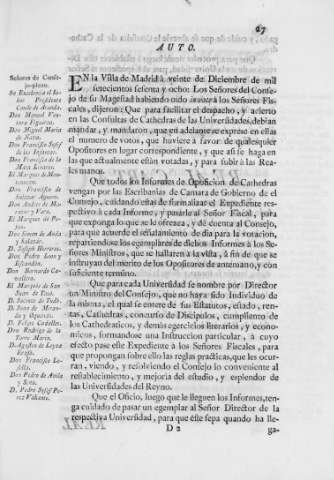 27
AUTO.
Señores de Consejo
pleno.
Su Excelencia el Señor
Presidente
Conde de Aranda.
Don Miguel Maria
de Nava.
Don Francisco Josef
de las Infantas.
Don Francisco de la
Mata Linares.
El Marques de Montenuevo.
Don Francisco de
Salazar Aguero.
Don Andres de Maraver
y Vera.
El Marques de
Don Simon de Anda
y Salazar.
D. Joseph Herreros.
Don Pedro Leon y
Escandon.
Don Bernardo Caballero.
El Marques de San
Juan de Tasó.
D. Jacinto de Tudó.
D. Juan de Miranda
y Oquendo.
D. Felipe Codallos.
Don Rodrigo de la
Torre Marin.
D. Agustin de Leyza
Eraso.
Don Francisco Losella.
Don Pedro de Avila
y Soto.
D. Pedro Josef Perez
Valiente.
EN la Villa de Madrid à veinte de Diciembre de mil
setecientos sesenta y ocho: Los Señores del Consejo
de su Magestad habiendo oido in voce à los Señores Fiscales,
dijeron: Que para facilitar el despacho, y acierto
en las Consultas de Cathedras de las Universidades, debian
mandar, y mandaron, que en adelante se exprese en ellas
el numero de votos, que huviere à favor de qualesquier
Opositores en lugar correspondiente, y que asi se haga en
las que actualmente están votadas, y para subir à las Reales
manos.
Que todos los Informes de Oposicion de Cathedras
vengan por las Escribanías de Camara de Gobierno de el
Consejo, cuidando estas de formalizar el Expediente respectivo
à cada Informe, y pasarle al Señor Fiscal, para
que exponga lo que se le ofrezca, y dé cuenta al Consejo,
para que acuerde el señalamiento de dia para la votacion,
repartiendose los egemplares de dichos Informes à los Señores
Ministros, que se hallaren à la votacion, à fin de que se
instruyan del merito de los Opositores de antemano, y con
suficiente termino.
Que para cada Universidad se nombre por Director
un Ministro del Consejo, que no haya sido Individuo de
la misma, el qual se entere de sus Estatutos, estado, Rentas,
Cathedras, concurso de Discipulos, cumplimiento de
los Cathedraticos, y demás egercicios literarios, y economicos,
formandose una Instruccion particular, à cuyo
efecto pase este Expediente à los Señores Fiscales, para
que propongan sobre ello las reglas practicas, que les ocurran,
viendo, y resolviendo el Consejo lo conveniente al
restablecimiento, y mejoría del estudio, y esplendor de
las Universidades del Reyno.
Que el Oficio, luego que le lleguen los Informes, tenga
cuidado de pasar un egemplar al Señor Director de la
respectiva Universidad, para que éste sepa quando ha lle-
D 2
ga-